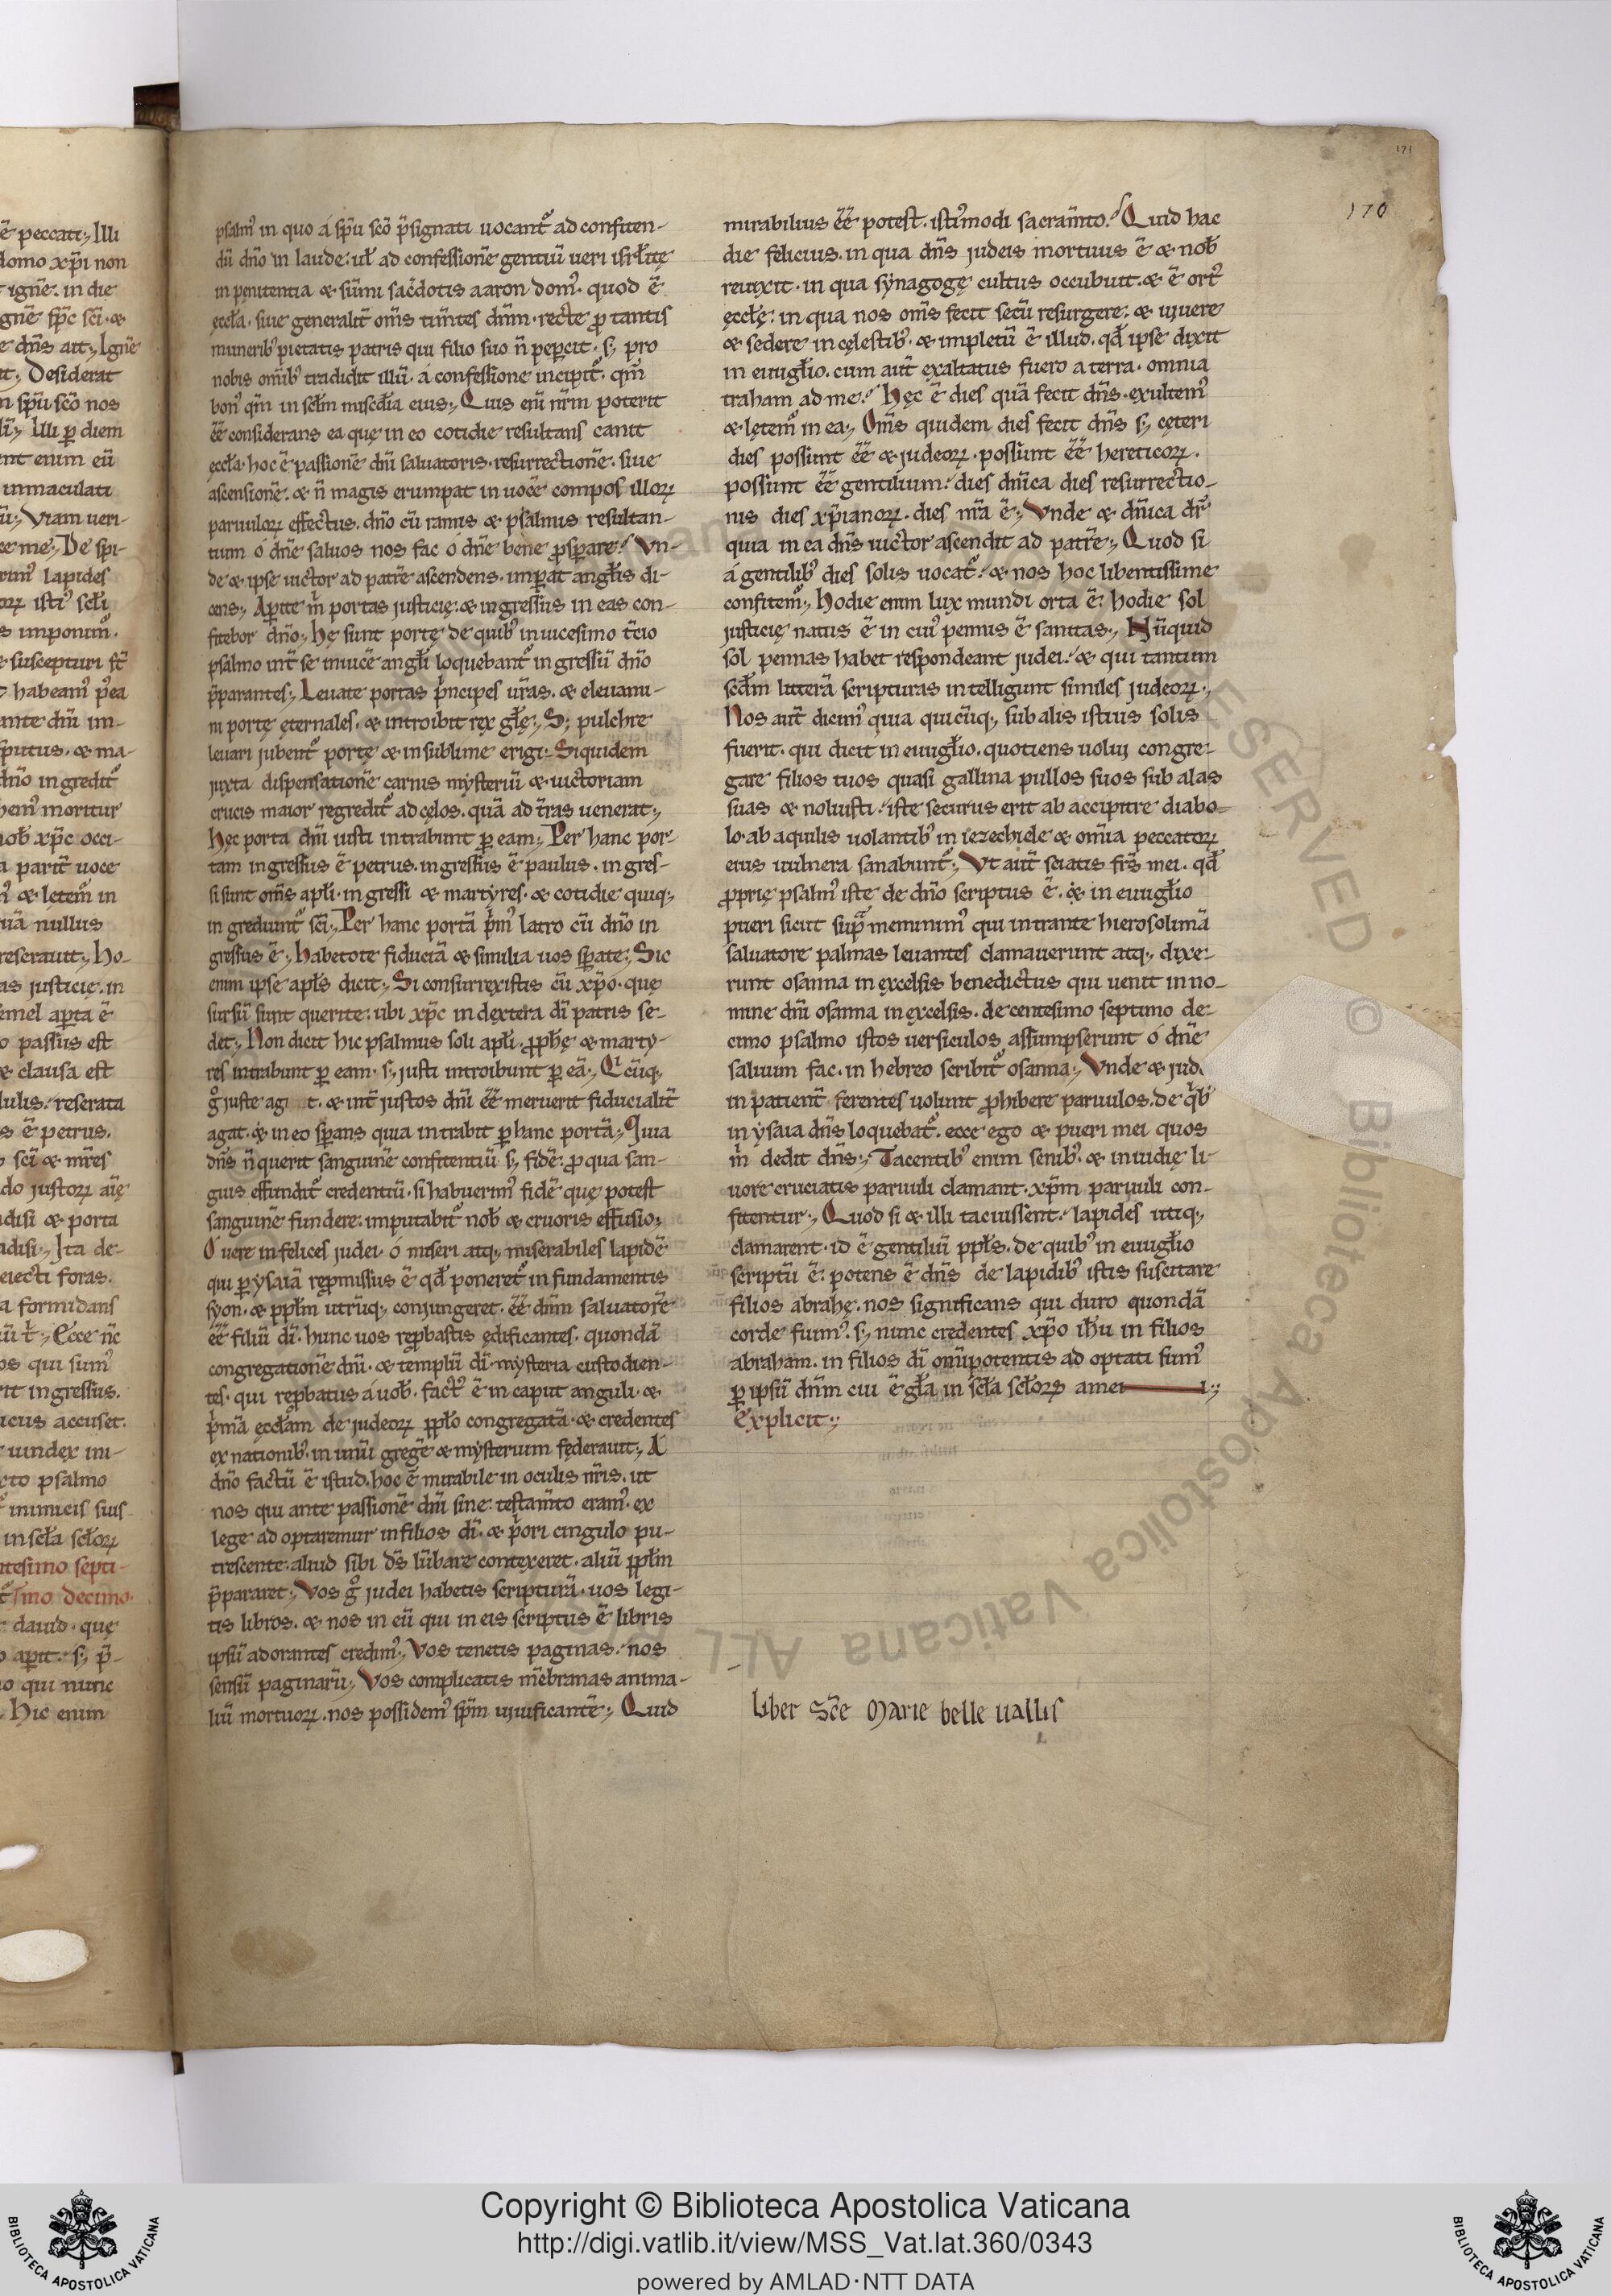 171
170
psalm᷒ in quo á sp̄u sc̄o p̄signati uocant᷑ ad confiten-
dū dn̄o in laude: ul̄ ad confessionē gentiū ueri isrl̄itę
in penitentia & sūmi sac̄dotis aaron dom᷒. quod ē
ęccl̄a. siue generalit̄ om̄s tim̄tes dn̄m. recte ꝓ tantis
munerib᷒ pietatis patris qui filio suo n̄ peꝑcit. s; pro
nobis omīb᷒ tradidit illū. á confessione incipit᷑. qm̄
bon᷒ qm̄ in scl̄m misc̄dia eius; Quis eni nr̄m poterit
ēē considerans ea quę in eo cotidie resultans canit
ęccl̄a. hoc ē passionē dn̄i saluatoris. resurrectionē. siue
ascensionē. & n̄ magis erumpat in uocē compos illoꝝ
paruuloꝝ effectus. dn̄o cū ramis & psalmis resultan-
tium ó dn̄e saluos nos fac ó dn̄e bene ꝓsꝑare! Vn-
de & ipse uictor ad patrē ascendens. imꝑat angl̄is di-
cens; Aꝑite m̄ portas justicię: & ingressus in eas con-
fitebor dn̄o; hę sunt portę de quib᷒ in uicesimo t̄cio
psalmo int̄ se inuicē angl̄i loquebant᷑ in gressū dn̄o
p̄parantes; Leuate portas p̄ncipes ur̄as. & eleuami-
ni portę ęternales. & introibit rex gl̄ę; S; pulchre
leuari jubent᷑ portę & in sublime erigi. Siquidem
juxta dispensationē carnis mysteriū & uictoriam
crucis maior regredit᷑ ad cęlos. quā ad t̄ras uenerat;
hęc porta dn̄i iusti intrabunt ꝑ eam; Per hanc por-
tam ingressus ē petrus. ingressus ē paulus. in gres-
si sunt om̄s apl̄i. in gressi & martyres. & cotidie quiq;
in grediunt᷑ sc̄i; Per hanc portā p̄m᷒ latro cū dn̄o in
gressus ē; habetote fiduciā & similia uos sꝑate; Sic
enim ipse apl̄s dicit; Si consurrexistis cū xp̄o. quę
sursū sunt querite: ubi xp̄c in dextera dī patris se-
det; Non dicit hic psalmus soli apl̄i. ꝓphę & marty-
res intrabunt ꝑ eam. s; justi introibunt ꝑ eā; Qͥcūq;
g̊ juste agi t. & int̄ justos dn̄i ēē meruerit fiducialit̄
agat. & in eo sꝑans quia intrabit ꝑ hanc portā; Quia
dn̄s n̄ querit sanguinē confitentiū s; fidē: ꝓ qua san-
guis effundit᷑ credentiū. si habuerim᷒ fidē quę potest
sanguinē fundere: imputabit᷑ nob̄ & cruoris effusio;
O uere infelices judei. ó miseri atq; miserabiles lapidē
qui ꝑ ysaiā reꝓmissus ē qđ poneret᷑ in fundamentis
syon. & ppl̄m utrūq; conjungeret. ēē dn̄m saluatorē
ēē filiū dī. hunc uos reꝓbastis ędificantes. quondā
congregationē dn̄i. & templū dī. mysteria custodien-
tes. qui reꝓbatus á uob̄. fact᷒ ē in caput anguli. &
p̄mā ęccl̄am de judeoꝝ ppl̄o congregatā. & credentes
ex nationib᷒. in unū gregē & mysterium fęderauit; A
dn̄o factū ē istud. hoc ē mirabile in oculis nr̄is. ut
nos qui ante passionē dn̄i sine testam̄to eram᷒. ex
lege ad optaremur in filios dī. & p̄ori cingulo pu-
trescente: aliud sibi dS̄ lūbare contexeret. aliū ppl̄m
p̄pararet; Vos g̊ judei habetis scripturā. uos legi-
tis libros. & nos in eū qui in eis scriptus ē libris
ipsū adorantes credim᷒; Vos tenetis paginas. nos
sensū paginarū; Vos complicatis mēbranas anima-
liū mortuoꝝ. nos possidem᷒ sp̄m uiuificantē; Quid
mirabilius ēē potest. isti᷒modi sacram̄to! Quid hac
die felicius. in qua dn̄s judeis mortuus ē & nob̄
reuixit. in qua synagogę cultus occubuit. & ē ort᷒
ęccl̄ę: in qua nos om̄s fecit secū resurgere: & uiuere
& sedere in cęlestib᷒. & impletū ē illud. qđ ipse dixit
in euugl̄io. cum aut̄ exaltatus fuero a terra. omnia
traham ad me! Hęc ē dies quā fecit dn̄s. exultem᷒
& lętem᷑ in ea; Om̄s quidem dies fecit dn̄s s; cęteri
dies possunt ēē & judeoꝝ. possunt ēē hereticoꝝ.
possunt ēē gentilium! dies dn̄ica dies resurrectio-
nis dies xp̄ianoꝝ. dies nr̄a ē; Vnde & dn̄ica dr̄
quia in ea dn̄s uictor ascendit ad patrē; Quod si
á gentilib᷒ dies solis uocat᷑! & nos hoc libentissime
confitem᷑; hodie enim lux mundi orta ē: hodie sol
justicię natus ē in cui᷒ pennis ē sanitas; Nūquid
sol pennas habet respondeant judei! & qui tantum
scđm litterā scripturas intelligunt similes judeoꝝ;
Nos aut̄ dicim᷒ quia quicūq; sub alis istius solis
fuerit. qui dicit in euugl̄io. quotiens uolui congre-
gare filios tuos quasi gallina pullos suos sub alas
suas & noluisti! iste securus erit ab accipitre diabo-
lo. ab aquilis uolantib᷒ in iezechiele & om̄ia peccatoꝝ
eius uulnera sanabunt᷑; Vt aut̄ sciatis frs̄ mei. qđ
ꝓprię psalm᷒ iste de dn̄o scriptus ē. & in euugl̄io
pueri sicut sup̄ meminim᷒ qui intrante hierosolimā
saluatore palmas leuantes clamauerunt atq; dixe-
runt osanna in excelsis benedictus qui uenit in no-
mine dn̄i osanna in excelsis. de centesimo septimo de-
cimo psalmo istos uersiculos assumpserunt ó dn̄e
saluum fac. in hebreo scribit᷑ osanna; Vnde & jud
in patient̄ ferentes uolunt ꝓhibere paruulos. de qͥb᷒
in ysaia dn̄s loquebat᷑. ecce ego & pueri mei quos
m̄ dedit dn̄s; Tacentib᷒ enim senib᷒. & inuidię li-
uore cruciatis paruuli clamant. xp̄m paruuli con-
fitentur; Quod si & illi tacuissent! lapides utiq;
clamarent. id ē gentiliū ppl̄s. de quib᷒ in euugl̄io
scriptū ē: potens ē dn̄s de lapidib᷒ istis suscitare
filios abrahę. nos significans qui duro quondā
corde fuim᷒. s; nunc credentes xp̄o ih̄u in filios
abraham. in filios dī om̄ipotentis ad optati sum᷒
ꝑ ipsū dn̄m cui ē gl̄a in scl̄a scl̄oꝝ amen;
Explicit;
liber Sc̄e Marie belle uallis
Copyright © Biblioteca Apostolica Vaticana
http://digi.vatlib.it/view/MSS_Vat.lat.360/0343
powered by AMLAD·NTT DATA
BIBLIOTECA APOSTOLICA VATICANA
BIBLIOTECA APOSTOLICA VATICANA